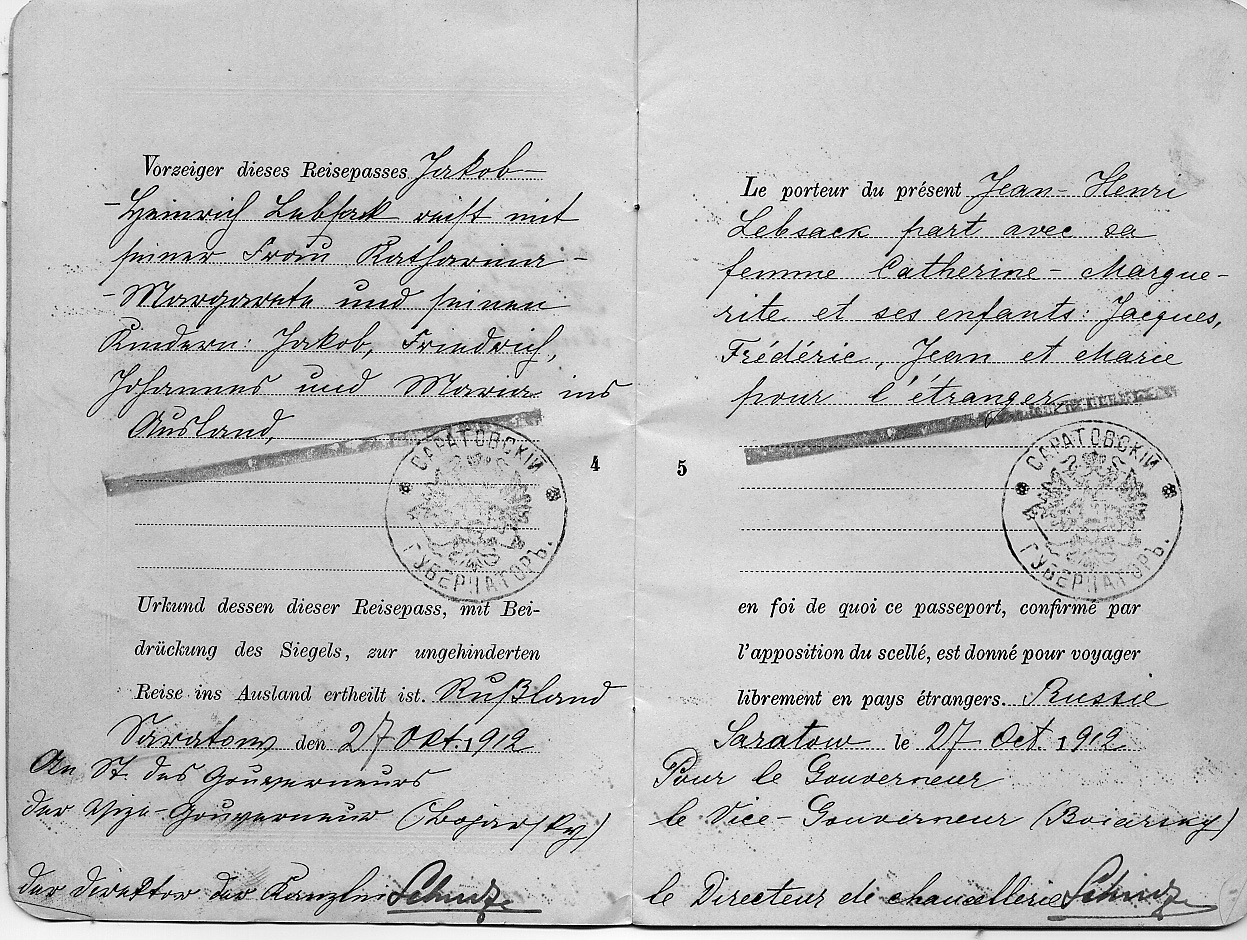 Vorzeiger dieses Reisepasses Jakob-
-Heinrich Lebsack reist mit
seiner Frau Katharina-
-Margarete und seinen
Kindern: Jakob, Friedrich,
Johannes und Maria ins
Ausland,
САРАТОВСКІЙ
ГУБЕРНАТОРЪ.
4
Urkund dessen dieser Reisepass, mit Bei-
drückung des Siegels, zur ungehinderten
Reise ins Ausland ertheilt ist. Rußland
Saratow den 27 Okt. 1912
An St. des Gouverneurs
der Vize-Gouverneur (Bojarsky)
der Direktor der Kanzlei
Le porteur du présent Jean-Henri
Lebsack part avec sa
femme Catherine-Margue-
rite et ses enfants: Jacques,
Frédéric, Jean et Marie
pour l'étranger
САРАТОВСКІЙ
ГУБЕРНАТОРЪ.
5
en foi de quoi ce passeport, confirmé par
l'apposition du scellé, est donné pour voyager
librement en pays étrangers. Russie
Saratow le 27 Oct. 1912
Pour le Gouverneur
le Vice-Gouverneur (Boiarsky)
le Directeur de chancellerie